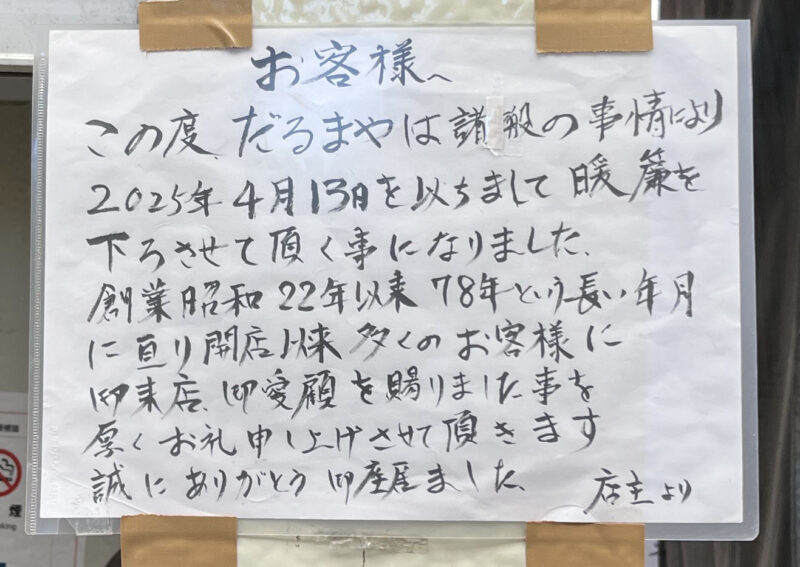 お客様へ
この度、だるまやは諸般の事情により
2025年4月13日を以ちまして暖簾を
下ろさせて頂く事になりました、
創業昭和22年以来78年という長い年月
に亘り開店以来多くのお客様に
御来店、御愛顧を賜りました事を
厚くお礼申し上げさせて頂きます
誠にありがとう御座居ました、
店主より
煙